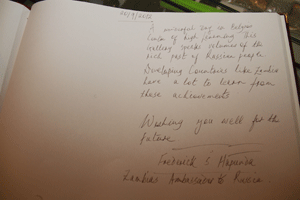 A meaningful day in
center of high learning. This
gallery speaks volumes of the
rich past of Russian people
Developing Countries like Zambia
have a lot to learn from
these achievements
Wishing you well for the
future
Frederick S
Zambia's Ambassador to Russia